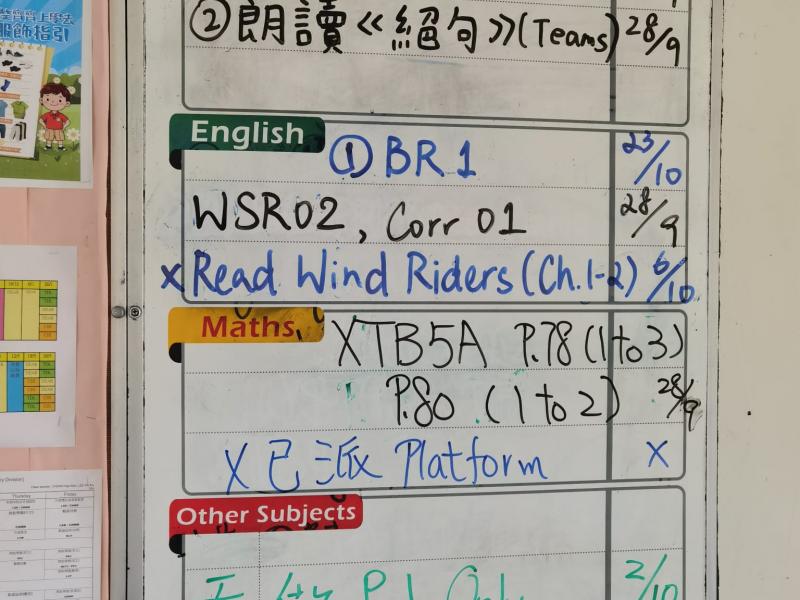 服飾指引
② 朗讀《絕句》(Teams) 28/9
English
① BR 1 23/10
WSR02, Corr 01 28/9
x Read Wind Riders (Ch.1-2) 6/10
Maths
X TB5A P.78 (1 to 3)
P.80 (1 to 2) 28/9
X 已派 Platform X
Other Subjects
2/10
Thursday Friday